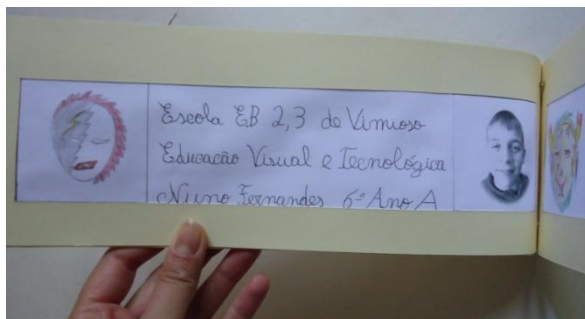 Escola EB 2,3 de Vimioso
Educação Visual e Tecnológica
Nuno Fernandes 6º Ano A